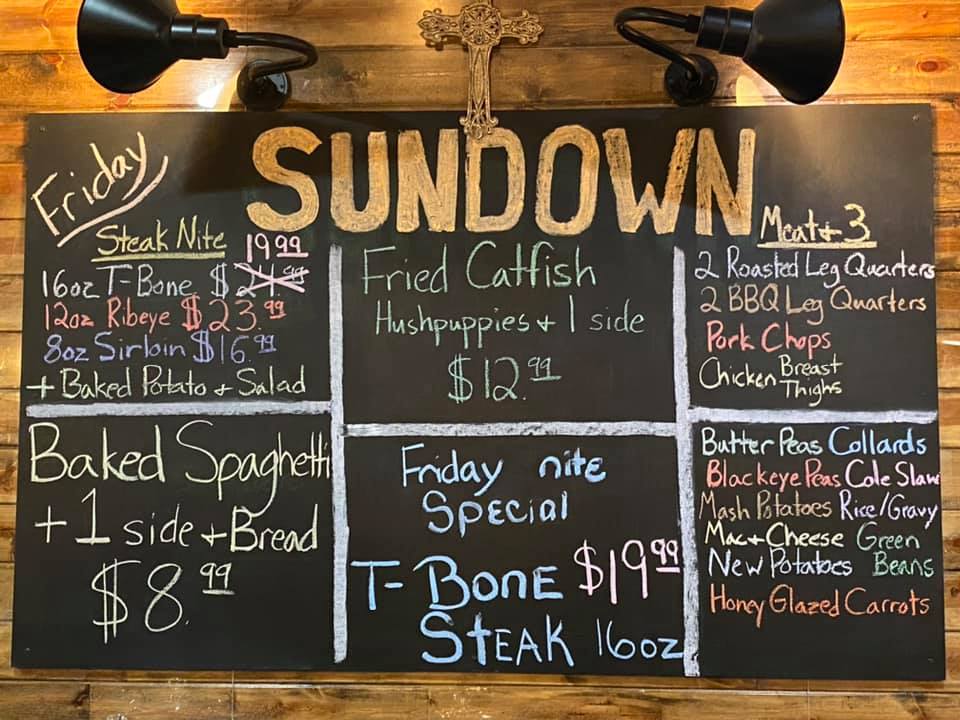 Friday
SUNDOWN
Steak Nite
19.99
16oz T-Bone $24.99
12oz Ribeye $23.99
8oz Sirloin $16.99
+ Baked Potato + Salad
Fried Catfish
Hushpuppies + 1 side
$12.99
Meat + 3
2 Roasted Leg Quarters
2 BBQ Leg Quarters
Pork Chops
Chicken Breast
Thighs
Baked Spaghetti
+ 1 side + Bread
$8.99
Friday nite
Special
T-Bone $19.99
Steak 16oz
Butter Peas Collards
Blackeye Peas Cole Slaw
Mash Potatoes Rice/Gravy
Mac + Cheese Green
New Potatoes Beans
Honey Glazed Carrots